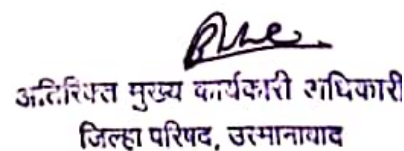 अतिरिक्त मुख्य कार्यकारी अधिकारी
जिल्हा परिषद, उस्मानाबाद